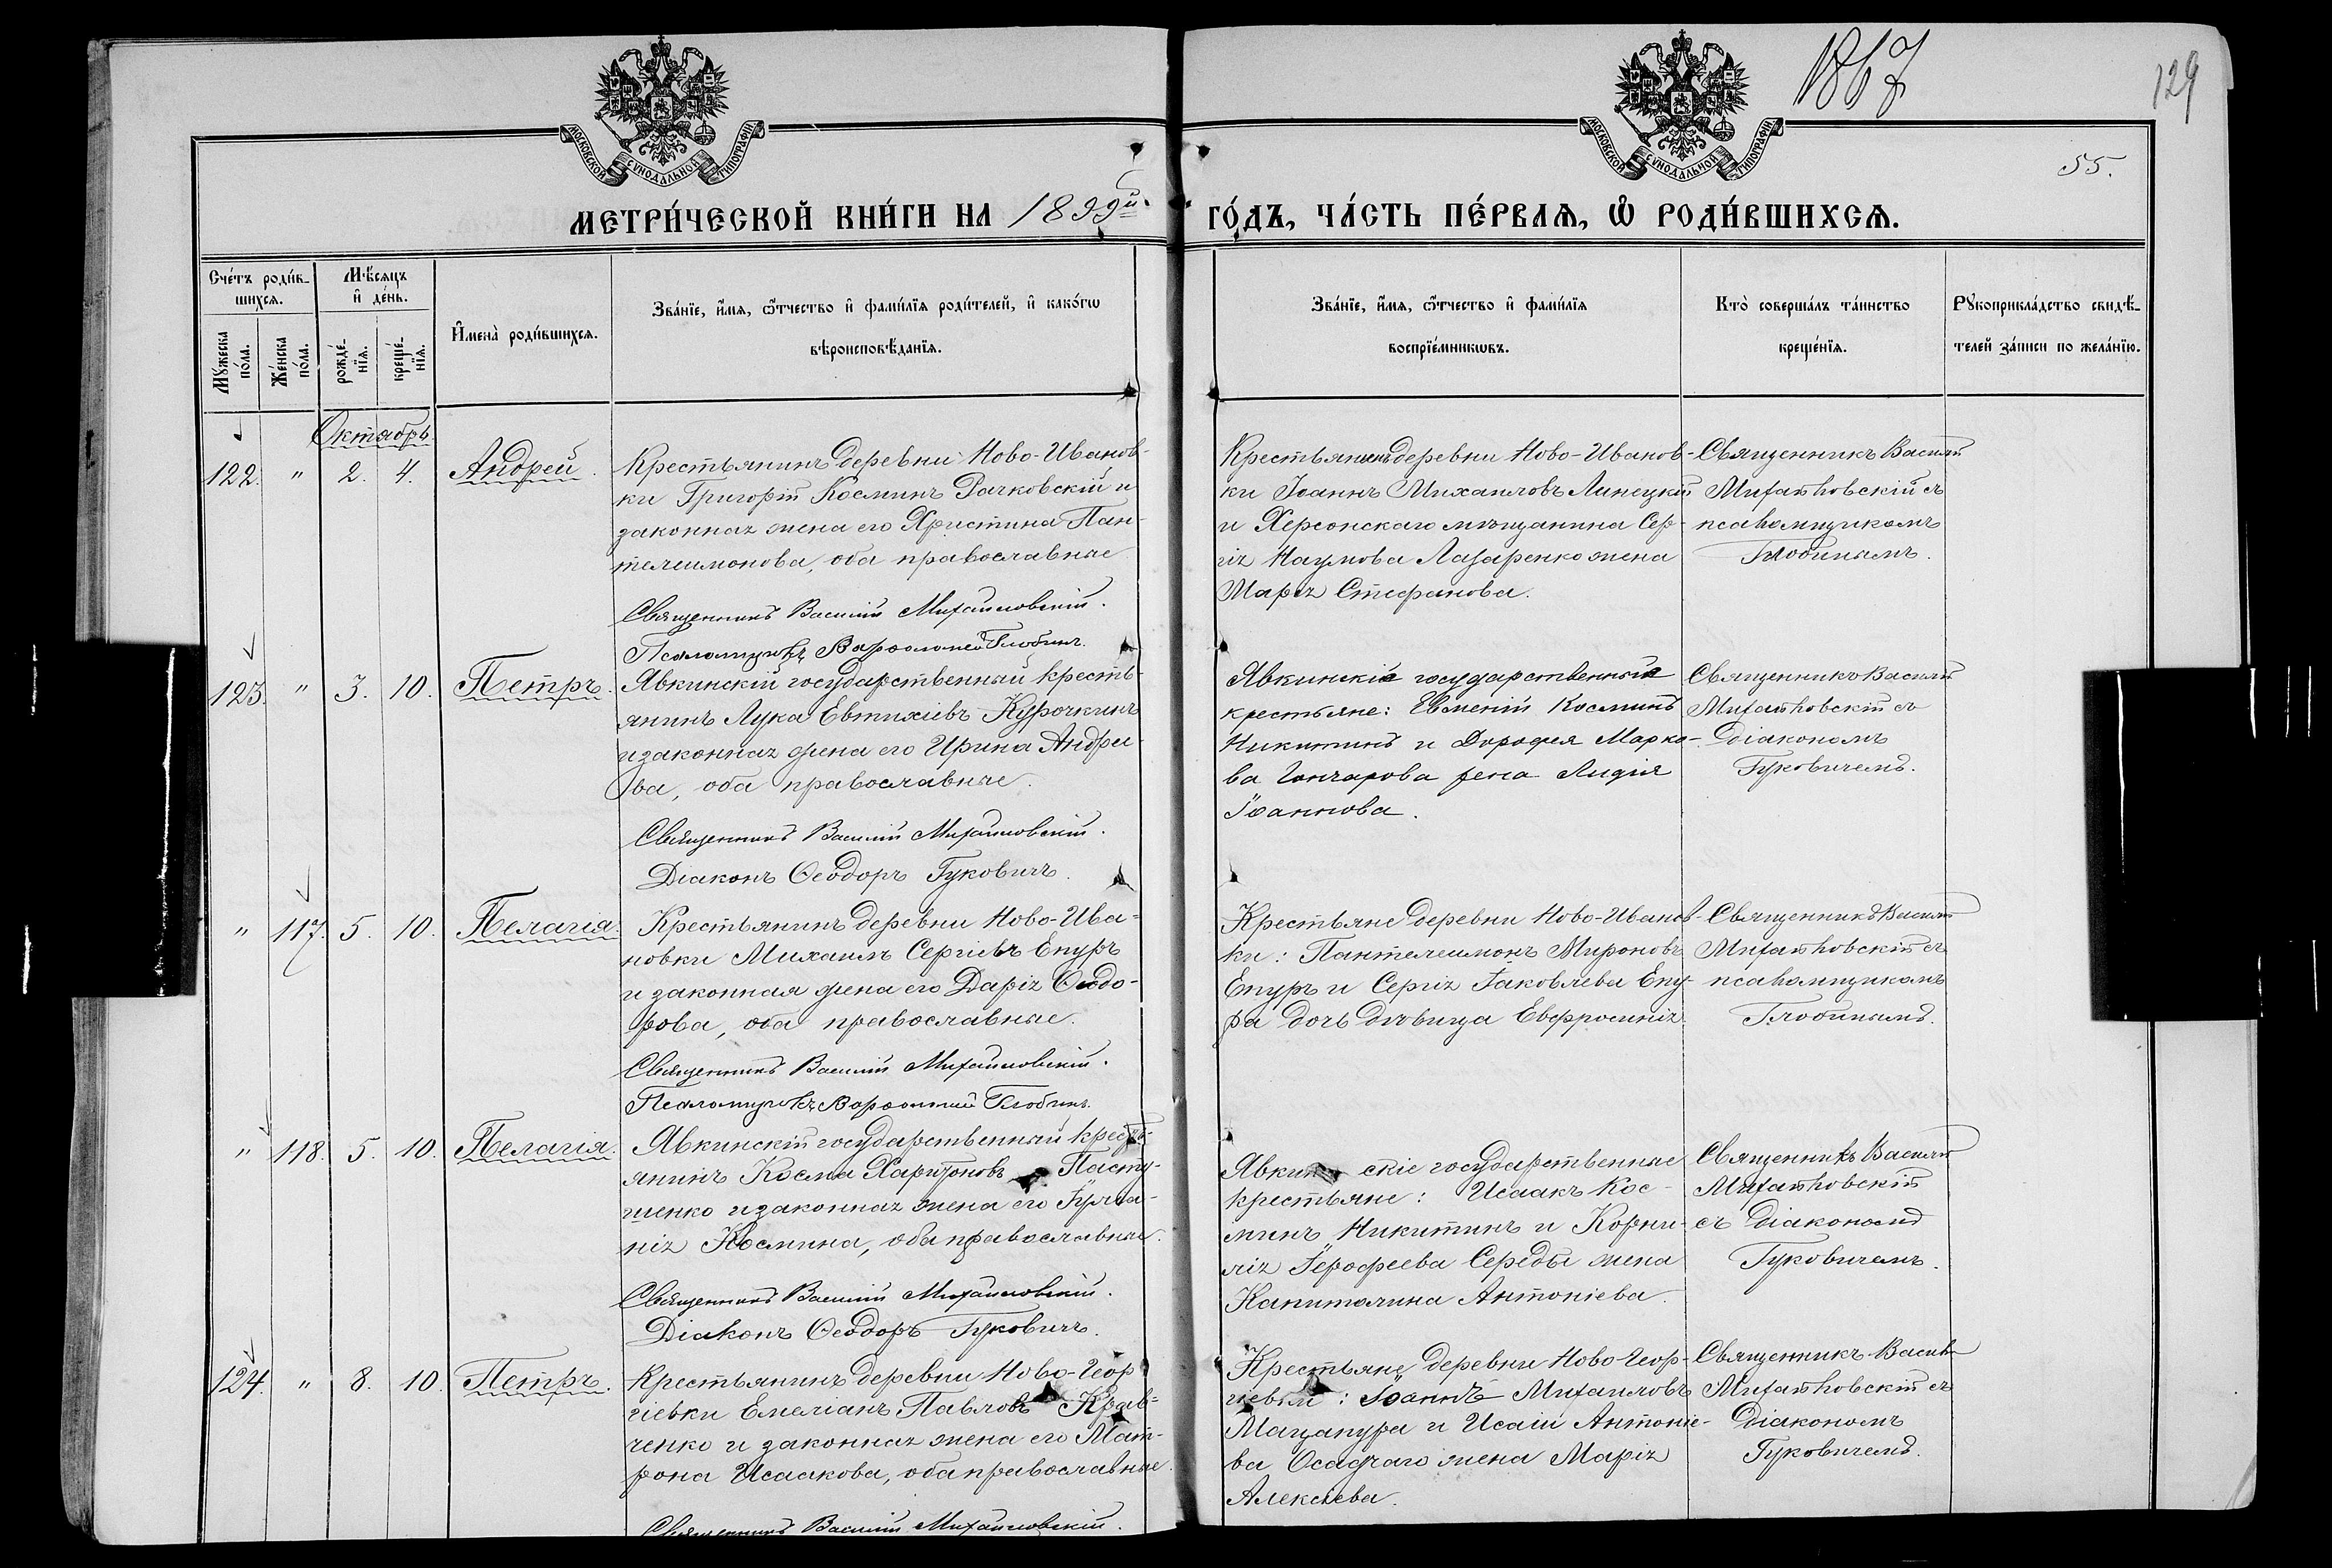 1867
129
55.
МОСКОВСКОЙ СѴНОДАЛЬНОЙ ТИПОГРАФІИ
МОСКОВСКОЙ СѴНОДАЛЬНОЙ ТИПОГРАФІИ
МЕТРИ́ЧЕСКОЙ КНИ́ГИ НА 1899й
ГО́ДЪ, ЧА́СТЬ ПЕ́РВАѦ, Ѽ РОДИ́ВШИХСѦ.
Сче́тъ роди́в-
шихсѧ.
Мꙋ́жеска
по́ла.
Же́нска
по́ла.
Мѣ́сяцъ
и҆ де́нь.
рожде́-
нїѧ.
креще́-
нїѧ.
И҆мена̀ роди́вшихсѧ.
Зва́нїе, и҆́мѧ, ѻ҆́тчество и҆ фами́лїѧ роди́телей, и҆ како́гѡ
вѣроисповѣ́данїѧ.
Зва́нїе, и҆́мѧ, ѻ҆́тчество и҆ фами́лїѧ
воспрїе́мникѡвъ.
Кто̀ соверша́лъ та́инство
креще́нїѧ.
Рꙋкоприкла́дство свидѣ́-
телей за́писи по жела́нїю.
Октябрь
122. " 2. 4. Андрей.
Крестьянинъ деревни Ново-Иванов-
ки Григорій Косминъ Рачковскій и
законная жена его Христина Пан-
телеимонова, оба православные
Священникъ Василій Михайловскій.
Псаломщикъ Варѳоломей Глобинъ.
Крестьянинъ деревни Ново-Иванов-
ки Іоаннъ Михаиловъ Линецкій
и Херсонскаго мѣщанина Сер-
гія Наумова Лазаренко жена
Марія Стефанова.
Священникъ Василій
Михайловскій съ
псаломщикомъ
Глобинымъ.
123. " 3. 10. Петръ.
Явкинскій государственный кресть-
янинъ Лука Евтихіевъ Курочкинъ
и законная жена его Ирина Андрее-
ва, оба православные.
Священникъ Василій Михайловскій.
Діаконъ Ѳеодоръ Гуковичъ.
Явкинскіе государственные
крестьяне: Евменій Косминъ
Никитинъ и Дорофея Марко-
ва Гончарова жена Лидія
Іоаннова.
Священникъ Василій
Михайловскій съ
діакономъ
Гуковичемъ.
" 117. 5. 10. Пелагія.
Крестьянинъ деревни Ново-Ива-
новки Михаилъ Сергіевъ Епуръ
и законная жена его Дарія Ѳеодо-
рова, оба православные.
Священникъ Василій Михайловскій.
Псаломщикъ Варѳоломей Глобинъ.
Крестьяне деревни Ново-Иванов-
ки: Пантелеимонъ Мироновъ
Епуръ и Сергія Іаковлева Епу-
ра дочь дѣвица Евфросинія.
Священникъ Василій
Михайловскій съ
псаломщикомъ
Глобинымъ.
" 118. 5. 10. Пелагія.
Явкинскій государственный кресть-
янинъ Косма Харитоновъ Пасту-
шенко и законная жена его Іуліа-
нія Космина, оба православные.
Священникъ Василій Михайловскій.
Діаконъ Ѳеодоръ Гуковичъ.
Явкинскіе государственные
крестьяне: Исаакъ Кос-
минъ Никитинъ и Корни-
лія Іерофеева Середы жена
Капитолина Антоніева.
Священникъ Василій
Михайловскій
съ діакономъ
Гуковичемъ.
124. " 8. 10. Петръ.
Крестьянинъ деревни Ново-Геор-
гіевки Емеліанъ Павловъ Крав-
ченко и законная жена его Мат-
рона Исаакова, оба православные.
Священникъ Василій Михайловскій.
Крестьяне деревни Ново-Геор-
гіевки: Іоаннъ Михаиловъ
Мацапура и Исаіи Антоніе-
ва Осадчаго жена Марія
Алексіева.
Священникъ Василій
Михайловскій съ
діакономъ
Гуковичемъ.